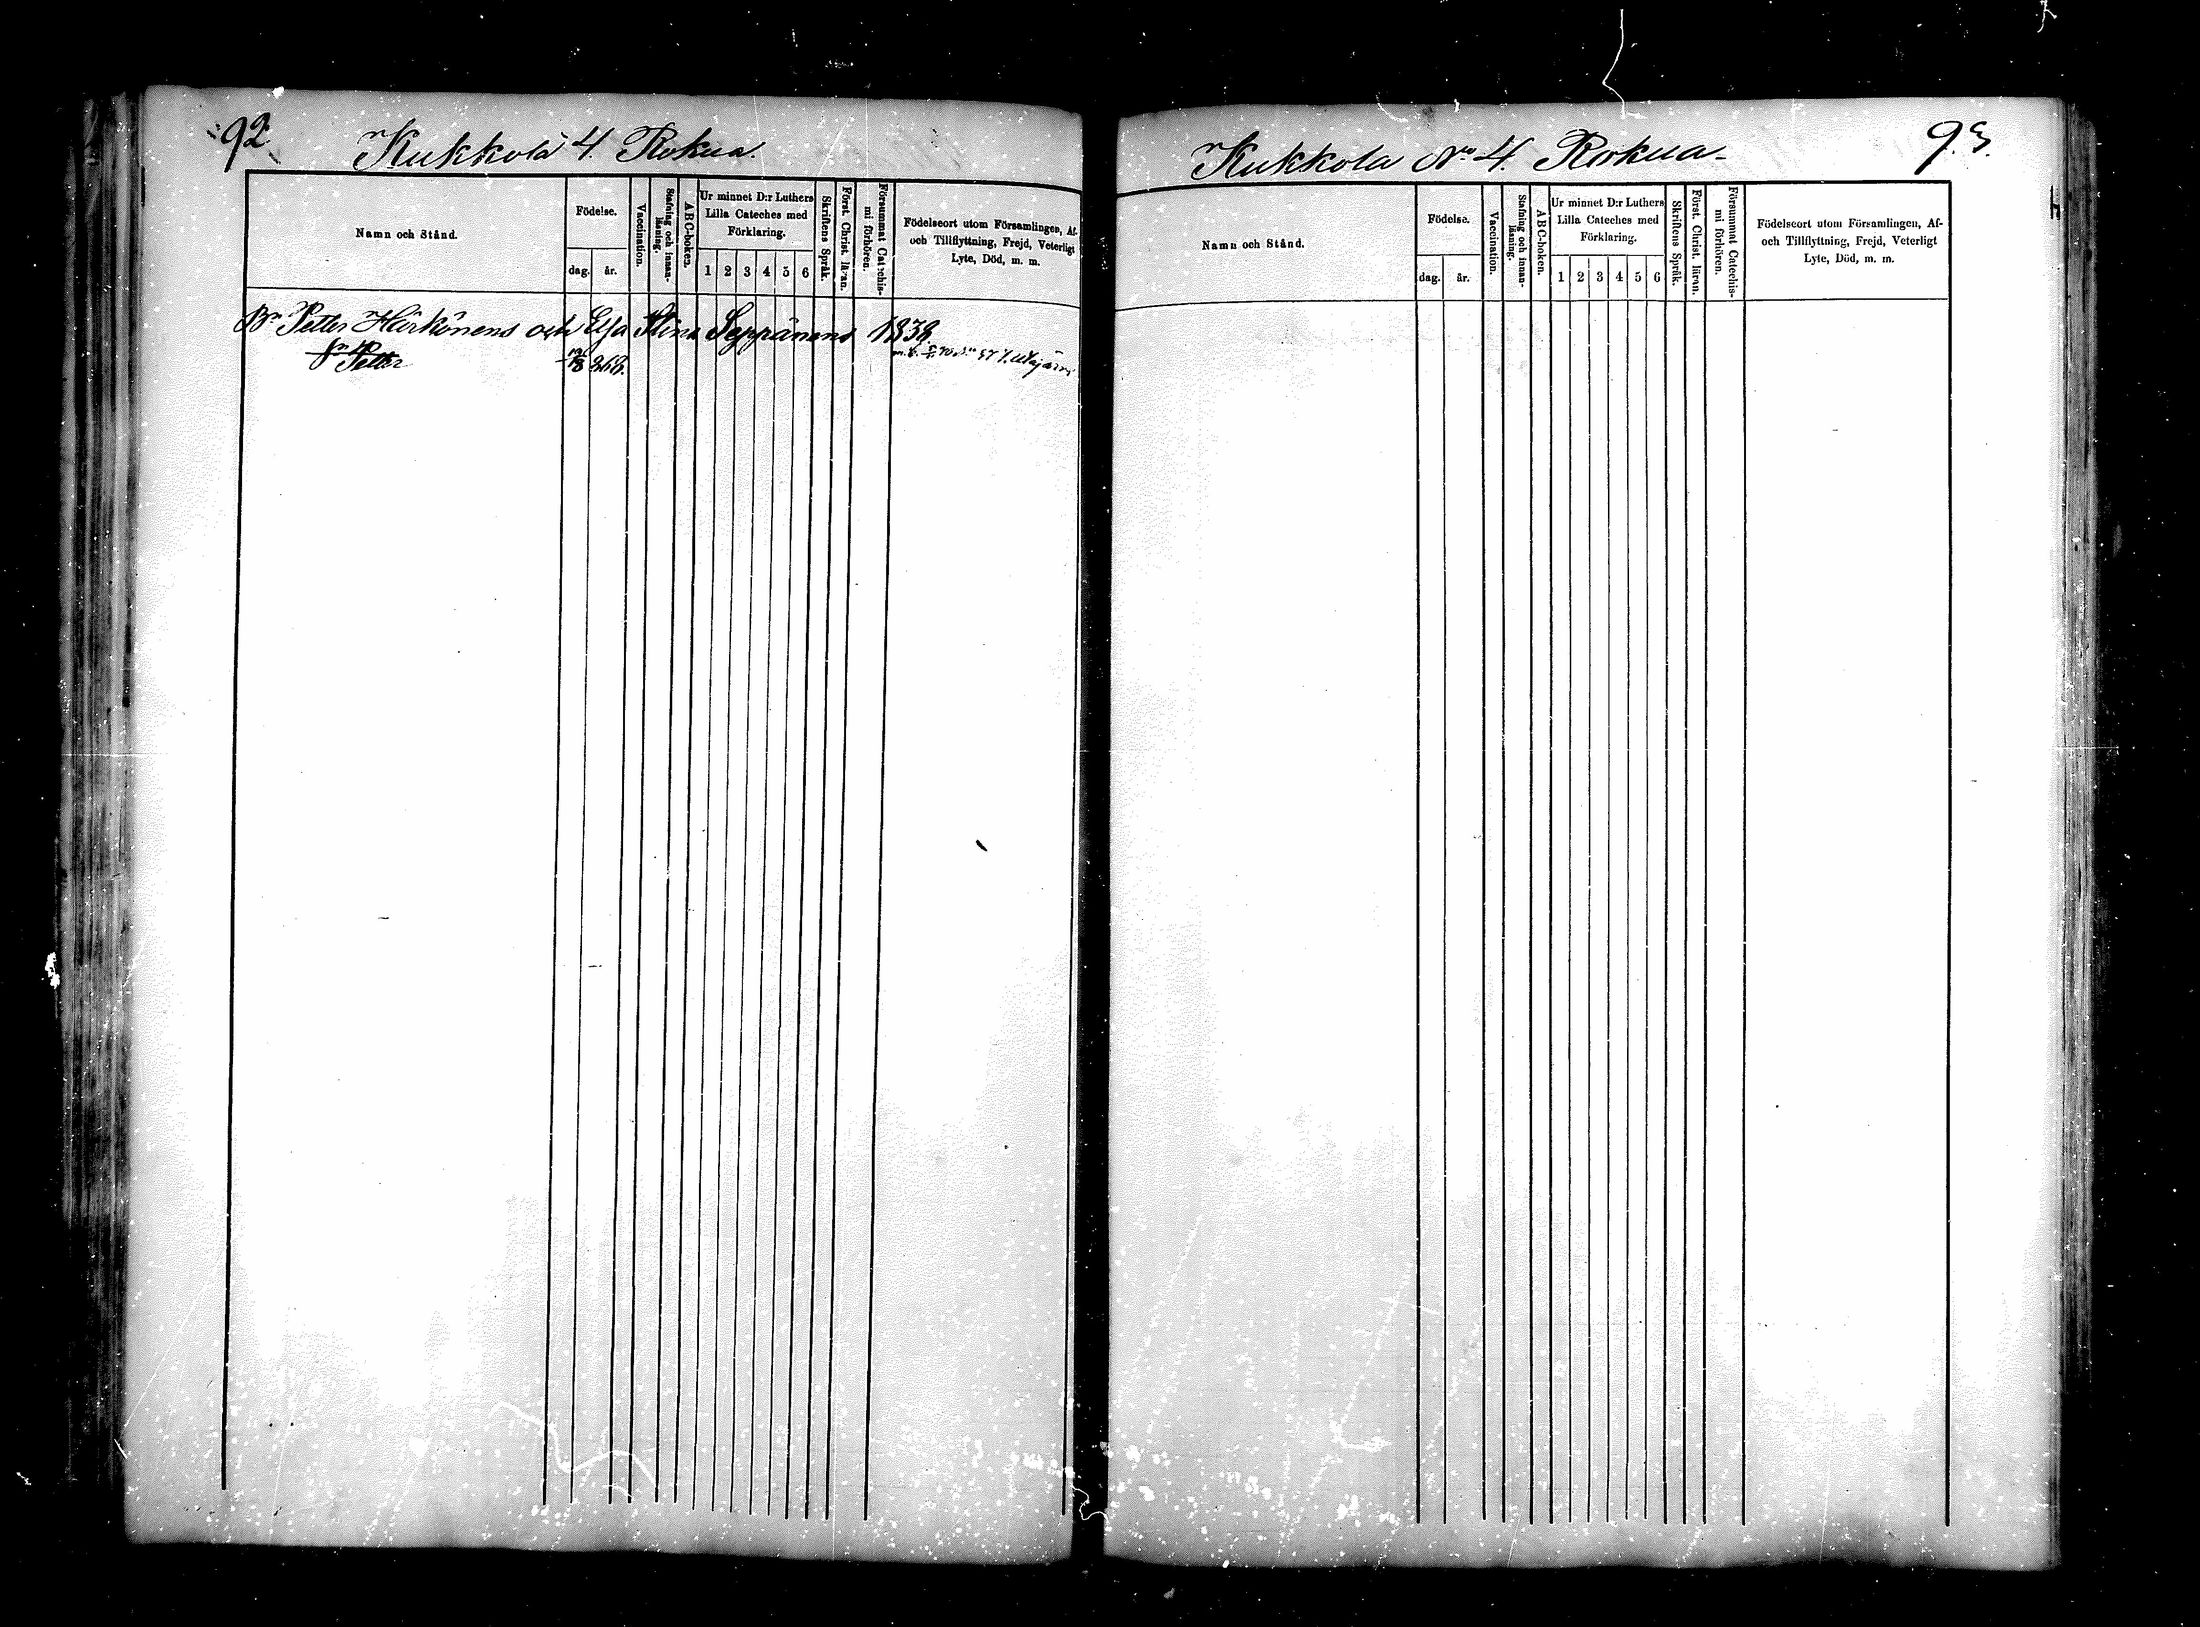 92
Kukkola 4. Rokua.
Namn och Stånd.
Födelse.
dag.
år.
Vaccination.
Stafning och innan-
läsning.
ABC-boken.
Ur minnet D:r Luthers
Lilla Cateches med
Förklaring.
1 2 3 4 5 6
Skriftens Språk.
Först. Christ. läran.
Försummat Catechis-
mi förhören.
Födelseort utom Församlingen, Af-
och Tillflyttning, Frejd, Veterligt
Lyte, Död, m. m.
Bn Petter Härkönens och Elsa Stina Seppänens 1838
Sn Petter 868.
Kukkola No 4. Rokua
93.
Namn och Stånd.
Födelse.
dag.
år.
Vaccination.
Stafning och innan-
läsning.
ABC-boken.
Ur minnet D:r Luthers
Lilla Cateches med
Förklaring.
1 2 3 4 5 6
Skriftens Språk.
Först. Christ. läran.
Försummat Catechis-
mi förhören.
Födelseort utom Församlingen, Af-
och Tillflyttning, Frejd, Veterligt
Lyte, Död, m. m.